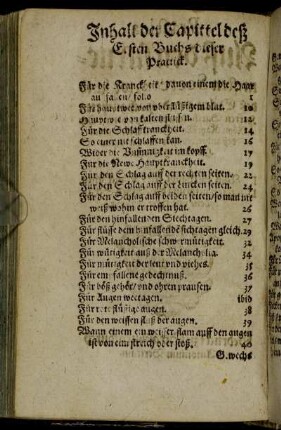 Inhalt der Capittel deß
Ersten Buchs dieser
Practick.
Für die Kranckheit davon einem die Haar
außfallen/ folio
Für hauptwee von überflüssigem blut. 10
Hauptwee von kalten flüssen.
Für die Schlaffkranckheit. 14
So einer nit schlaffen kan. 16
Wider die Unsinnigkeit im kopff. 17
Für die Newe Hauptkranckheit. 19
Für den Schlag auff der rechten seiten. 22
Für den Schlag auff der lincken seiten. 24
Für den Schlag auff beiden seiten/ so man nit
weiß wohin er troffen hat. 26
Für den hinfallenden Siechtagen. 27
Für flüsse dem hinfallende sichtagen gleich. 29
Für Melancholische schwermütigkeit. 32
Für wütigkeit auß der Melancholia. 34
Für wütigkeit der leut und viehes. 35
Für entfallene gedechtnuß. 36
Für böß gehör/ und ohren prausen. 37
Für Augen weetagen. ibid
Für rote flüssige augen. 38
Für den weissen fluß der augen. 39
Wann einem ein weisser flam auff den augen
ist von eim streich oder stoß. 40
G. wechs